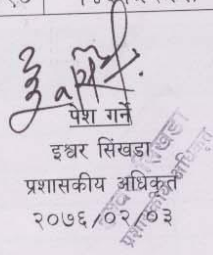 पेश गर्ने
इश्वर सिंखडा
प्रशासकीय अधिकृत
२०७६/०२/०३